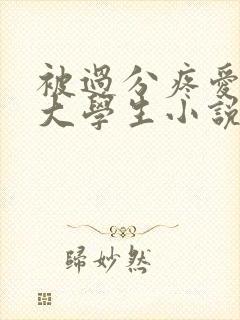 被過分疼愛
大學生小說
歸妙然